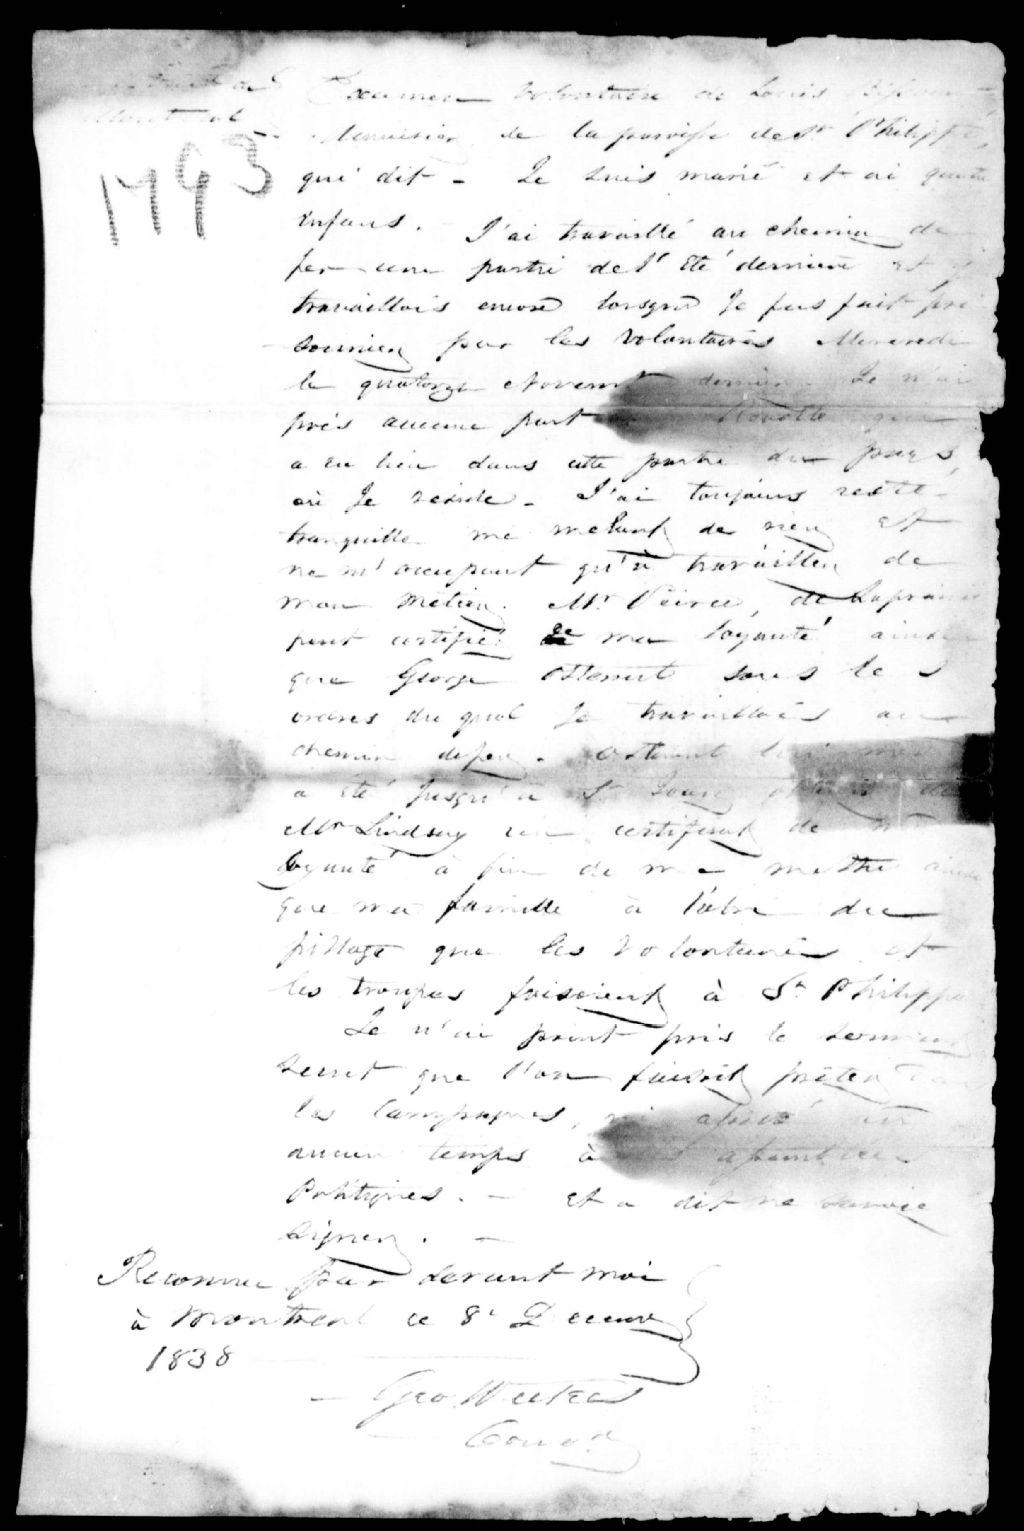 Montreal
1793
Examen Volontaire de Louis
Menuisier de la paroisse de St Philippe,
qui dit - Je suis marié et ai quatre
enfans. - J'ai travaillé au chemin de
fer une partie de l'Eté derniere et
travaillois encore lorsque Je fus fait pri
sonnier par les Volontaires
le quatorze Novembre dernier. Je n'ai
pris aucune part Revolte qui
a eu lieu dans cette partie du pays,
où Je reside. - J'ai toujours resté
tranquille me melant de rien et
ne m'occupant qu'à travailler de
mon metier. Mr Peirce, de Laprairie
peut certifié de ma loyauté ainsi
que George sous les
ordres du quel Je travaillois au
chemin de fer. -
a été jusqu'a St
Mr Lindsay un certificat de
loyauté à fin de me mettre ainsi
que ma famille à l'abri du
pillage que les Volontaires et
les troupes faisoient à St Philippe
Je n'ai point pris le serment
secret que l'on faisoit preter
les Campagnes, ni en
aucun temps à assemblées
Politiques. - et a dit ne savoir
signer. -
Reconnu par devant moi
à Montreal ce 8e Decembre
1838
Geo Weekes